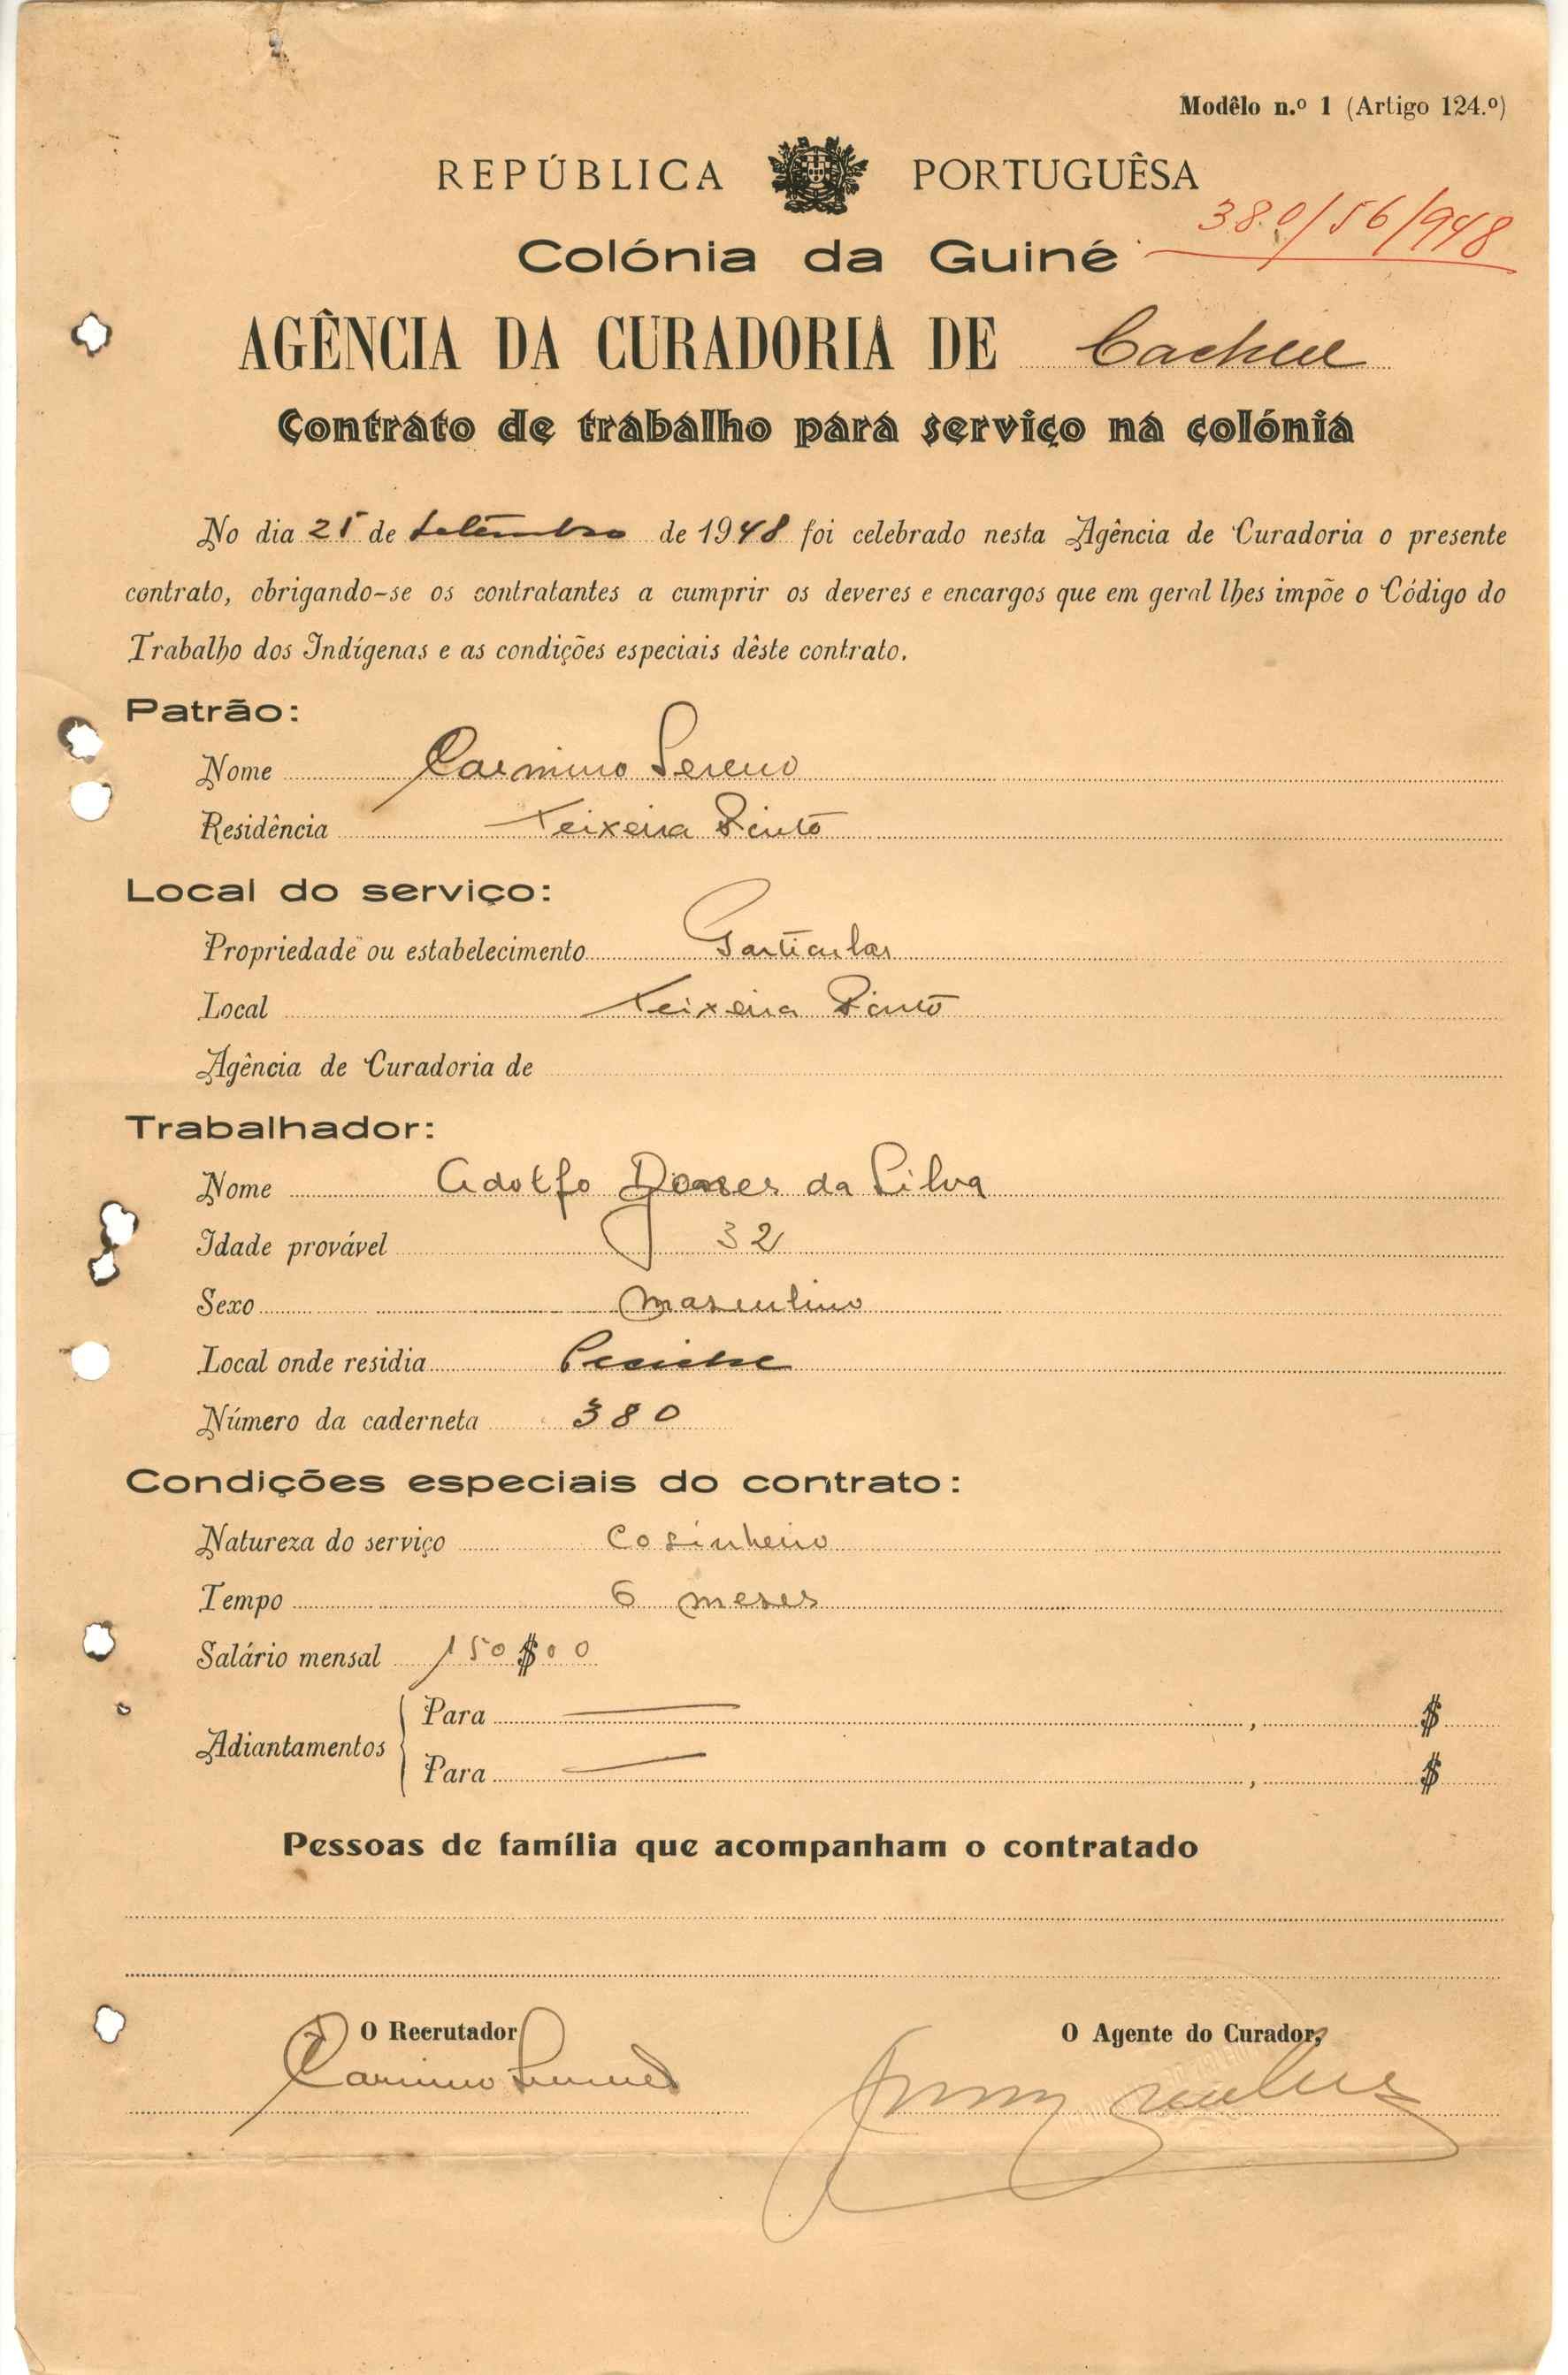 Modêlo n.º 1 (Artigo 124.º)
REPÚBLICA PORTUGUÊSA
380/56/948
Colónia da Guiné
AGÊNCIA DA CURADORIA DE Cacheu
Contrato de trabalho para serviço na colónia
No dia 25 de Setembro de 1948 foi celebrado nesta Agência de Curadoria o presente
contrato, obrigando-se os contratantes a cumprir os deveres e encargos que em geral lhes impõe o Código do
Trabalho dos Indígenas e as condições especiais dêste contrato.
Patrão:
Nome Carmino Sereno
Residência Teixeira Pinto
Local do serviço:
Propriedade ou estabelecimento Particular
Local Teixeira Pinto
Agência de Curadoria de
Trabalhador:
Nome Adolfo da Silva
Idade provável 32
Sexo Masculino
Local onde residia
Número da caderneta 380
Condições especiais do contrato:
Natureza do serviço Cosinheiro
Tempo 6 meses
Salário mensal 150$00
Adiantamentos
Para , $
Para , $
Pessoas de família que acompanham o contratado
O Recrutador O Agente do Curador,
Carmino